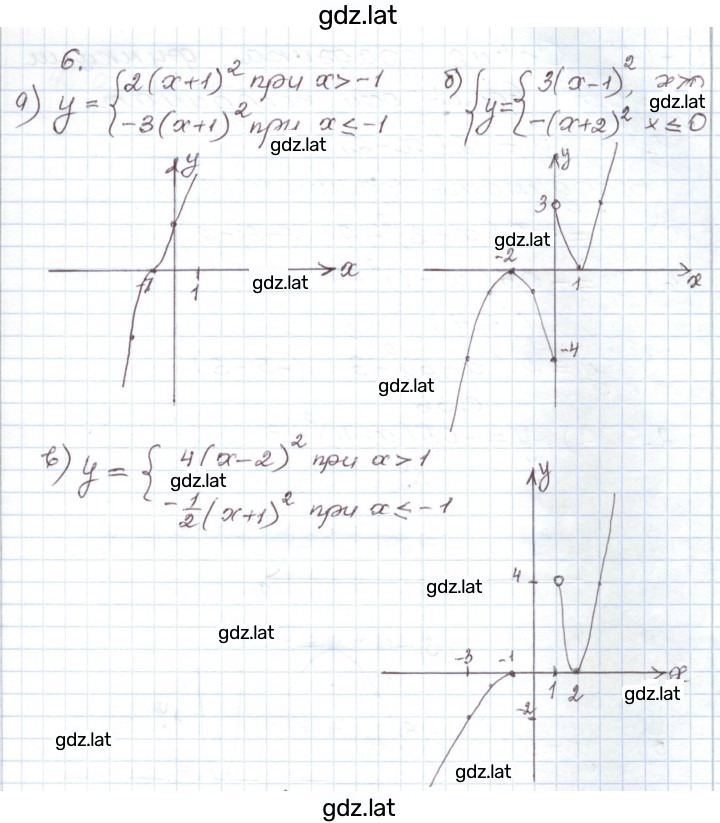 gdz.lat
6.
а) y = { 2(x+1)² при x > -1
-3(x+1)² при x ≤ -1
gdz.lat
б) { y = { 3(x-1)²,
gdz.lat
-(x+2)² x ≤ 0
y
x
-1
1
gdz.lat
y
3
gdz.lat
-2
1
x
-4
gdz.lat
в) y = { 4(x-2)² при x > 1
gdz.lat
-1/2(x+1)² при x ≤ -1
y
4
gdz.lat
gdz.lat
-3
-1
x
1
2
gdz.lat
-2
gdz.lat
gdz.lat
gdz.lat